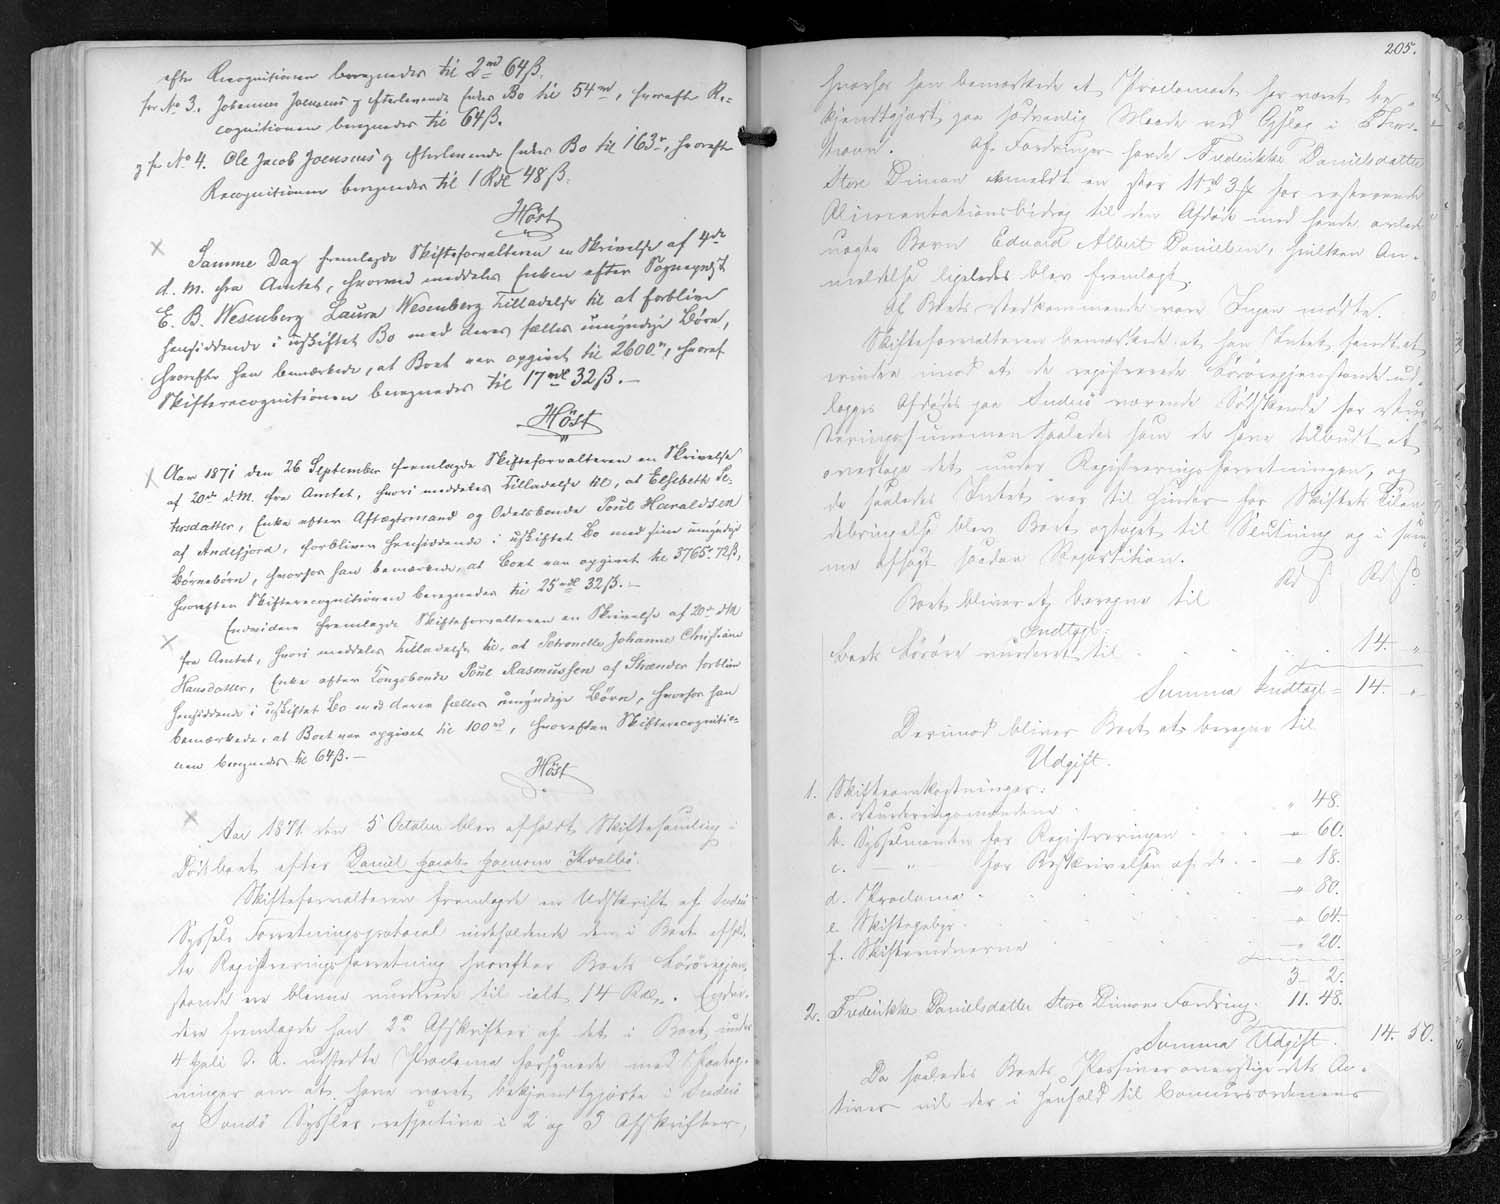 efter Recognitionen beregnedes til 2 rd 64 ß.
for No 3. Johannes Joensens og efterlevende Enkes Bo til 54 rd, hvorefter Re-
cognitionen beregnedes til 64 ß.
og for No 4. Ole Jacob Joensens og efterlevende Enkes Bo til 163 rd, hvorefter
Recognitionen beregnedes til 1 Rdl 48 ß.
Høst
Samme Dag fremlagde Skifteforvalteren en Skrivelse af 4de
d. M. fra Amtet, hvorved meddeles Enken efter Sognepræst
E. B. Wesenberg Laura Wesenberg Tilladelse til at forblive
hensiddende i uskiftet Bo med deres fælles umyndige Børn,
hvorefter han bemærkede, at Boet var opgivet til 2600 rd, hvoraf
Skifterecognitionen beregnedes til 17 rdl 32 ß. —
Høst
Aar 1871 den 26 September fremlagde Skifteforvalteren en Skrivelse
af 20de d. M. fra Amtet, hvori meddeles Tilladelse til, at Elsebeth Je-
cobsdatter, Enke efter Aftægtsmand og Odelsbonde Poul Haraldsen
af Andefjord, forbliver hensiddende i uskiftet Bo med sine umyndige
Børnebørn, hvorfor han bemærkede, at Boet var opgivet til 3765 rd 72 ß,
hvorefter Skifterecognitionen beregnedes til 25 rdl 32 ß. —
Endvidere fremlagde Skifteforvalteren en Skrivelse af 20de d M
fra Amtet, hvori meddeles Tilladelse til, at Petronelle Johanne Christiane
Hansdatter, Enke efter Kongsbonde Poul Rasmussen af Strænder forbliver
hensiddende i uskiftet Bo med deres fælles umyndige Børn, hvorfor han
bemærkede, at Boet var opgivet til 100 rd, hvorefter Skifterecognitio-
nen beregnedes til 64 ß. —
Høst
Aar 1871 den 5 October blev afholdt Skiftesamling i
Dødsboet efter Daniel Jacob Joensen Kvalbø.
Skifteforvalteren fremlagde en Udskrift af Suderø
Syssels Forretningsprotocol indeholdende den i Boet afhold-
te Registreringsforretning hvorefter Boets Løsøregjen-
stande ere blevne vurderede til ialt 14 Rdl. Endvi-
dere fremlagde han 2de Afskrifter af det i Boet under
4 Juli d. A. udstedte Proclama forsynede med Paateg-
ninger om at have været bekjendtgjorte i Suderø
og Sandø Syssler respective i 2 og 3 Afskrifter,
205.
hvorhos han bemærkede at Proclamaet har været be-
kjendtgjort paa sædvanlig Maade ved Opslag i Thors-
havn. Af Fordringer havde Frederikke Danielsdatter
Store Dimon anmeldt en stor 11 rd 3 ß for resterende
Alimentationsbidrag til den Afdøde med hende avlede
uægte Barn Eduard Albert Danielsen, hvilken An-
meldelse ligeledes blev fremlagt.
Af Boets Vedkommende vare Ingen mødte.
Skifteforvalteren bemærkede at han Intet havde at
erindre imod at de registrerede Løsøregjenstande ud-
lægges Afdødes paa Suderø værende Sødskende for Vur-
deringssummen saaledes som de have tilbudt at
overtage det under Registreringsforretningen, og
da saaledes Intet var til Hinder for Skiftets Tilen-
debringelse blev Boet optaget til Slutning og i sam-
me afsagt saadan Repartition.
Rd ß Rd ß
Boet bliver at beregne til
Indtægt:
Boets Løsøre vurderet til . . . . . 14. "
Summa Indtægt = 14. "
Derimod bliver Boet at beregne til
Udgift.
1. Skifteomkostninger:
a. Vurderingsmændene . . . . " 48.
b. Sysselmanden for Registreringen . . . " 60.
c. — " — for Beskrivelsen af do . . " 18.
d. Proclama . . . . . " 80.
e. Skiftegebyr . . . . . " 64.
f. Skiftevidnerne . . . . " 20.
3 — 2.
2. Frederikke Danielsdatter Store Dimons Fordring. 11. 48.
Summa Udgift. 14. 50.
Da saaledes Boets Passiver overstige dets Ac-
tiver vil der i Henhold til Concursordenens